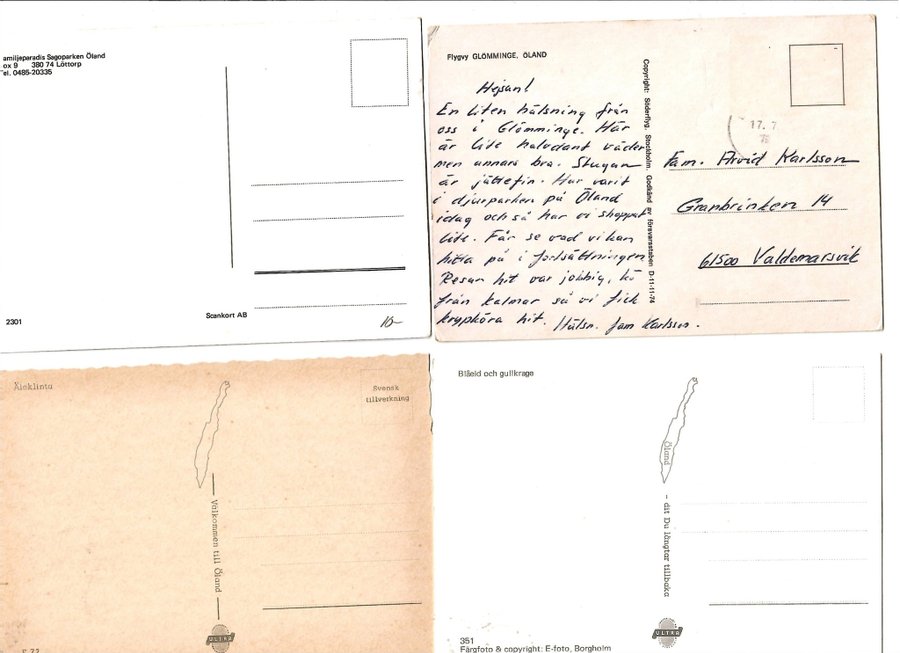 amiljeparadis Sagoparken Öland
ox 9 380 74 Löttorp
el. 0485-20335
2301
Scankort AB
10-
Flygvy GLÖMMINGE, ÖLAND
Hejsan!
En liten hälsning från
oss i Glömminge. Här
är lite halvdant väder
men annars bra. Stugan
är jättefin. Har varit
i djurparken på Öland
idag och så har vi shoppat
lite. Får se vad vi kan
hitta på i fortsättningen
Resan hit var jobbig, kö
från Kalmar så vi fick
krypköra hit. Hälsn. fam Karlsson.
Copyright: Söderflyg, Stockholm. Godkänd av försvarsstaben D-11-11-74
17. 7
Fam. Arvid Karlsson
Granbrinken 14
61500 Valdemarsvik
Äleklinta
Svensk
tillverkning
Välkommen till Öland
ULTRA
F 72
Blåeld och gullkrage
Öland
- dit Du längtar tillbaka
ULTRA
351
Färgfoto & copyright: E-foto, Borgholm